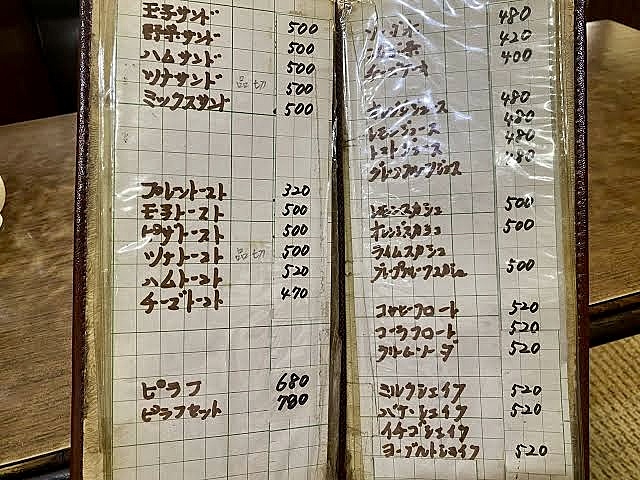 玉子サンド 500
野菜サンド 500
ハムサンド 500
ツナサンド 品切 500
ミックスサンド 500
プレントースト 320
玉子トースト 500
ピザトースト 500
ツナトースト 品切 500
ハムトースト 520
チーズトースト 470
ピラフ 680
ピラフセット 780
480
420
400
オレンジジュース 480
レモンジュース 480
トマトジュース 480
グレープフルーツジュース 480
レモンスカシュ 500
オレンジスカシュ 500
ライムスカシュ
グレープフルーツスカシュ 500
コーヒーフロート 520
コーラフロート 520
クリームソーダ 520
ミルクシェイク 520
バナナシェイク 520
イチゴシェイク
ヨーグルトシェイク 520